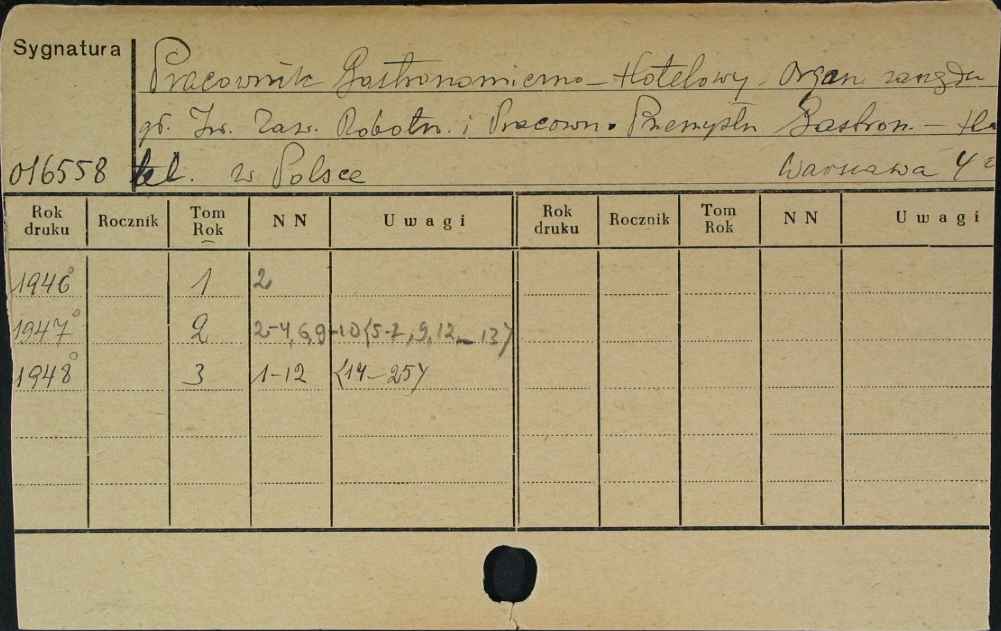 Sygnatura
Pracownik Gastronomiczno-Hotelowy. Organ zarządu
gł. Zw. Zaw. Robotn. i Pracown. Przemysłu Gastron.-Ho
016558 tel. w Polsce Warszawa 4°
Rok druku Rocznik Tom Rok NN Uwagi Rok druku Rocznik Tom Rok NN Uwagi
1946° 1 2
1947° 2 2-4,6,9-10 {5-7,9,12-13}
1948° 3 1-12 {14-25}